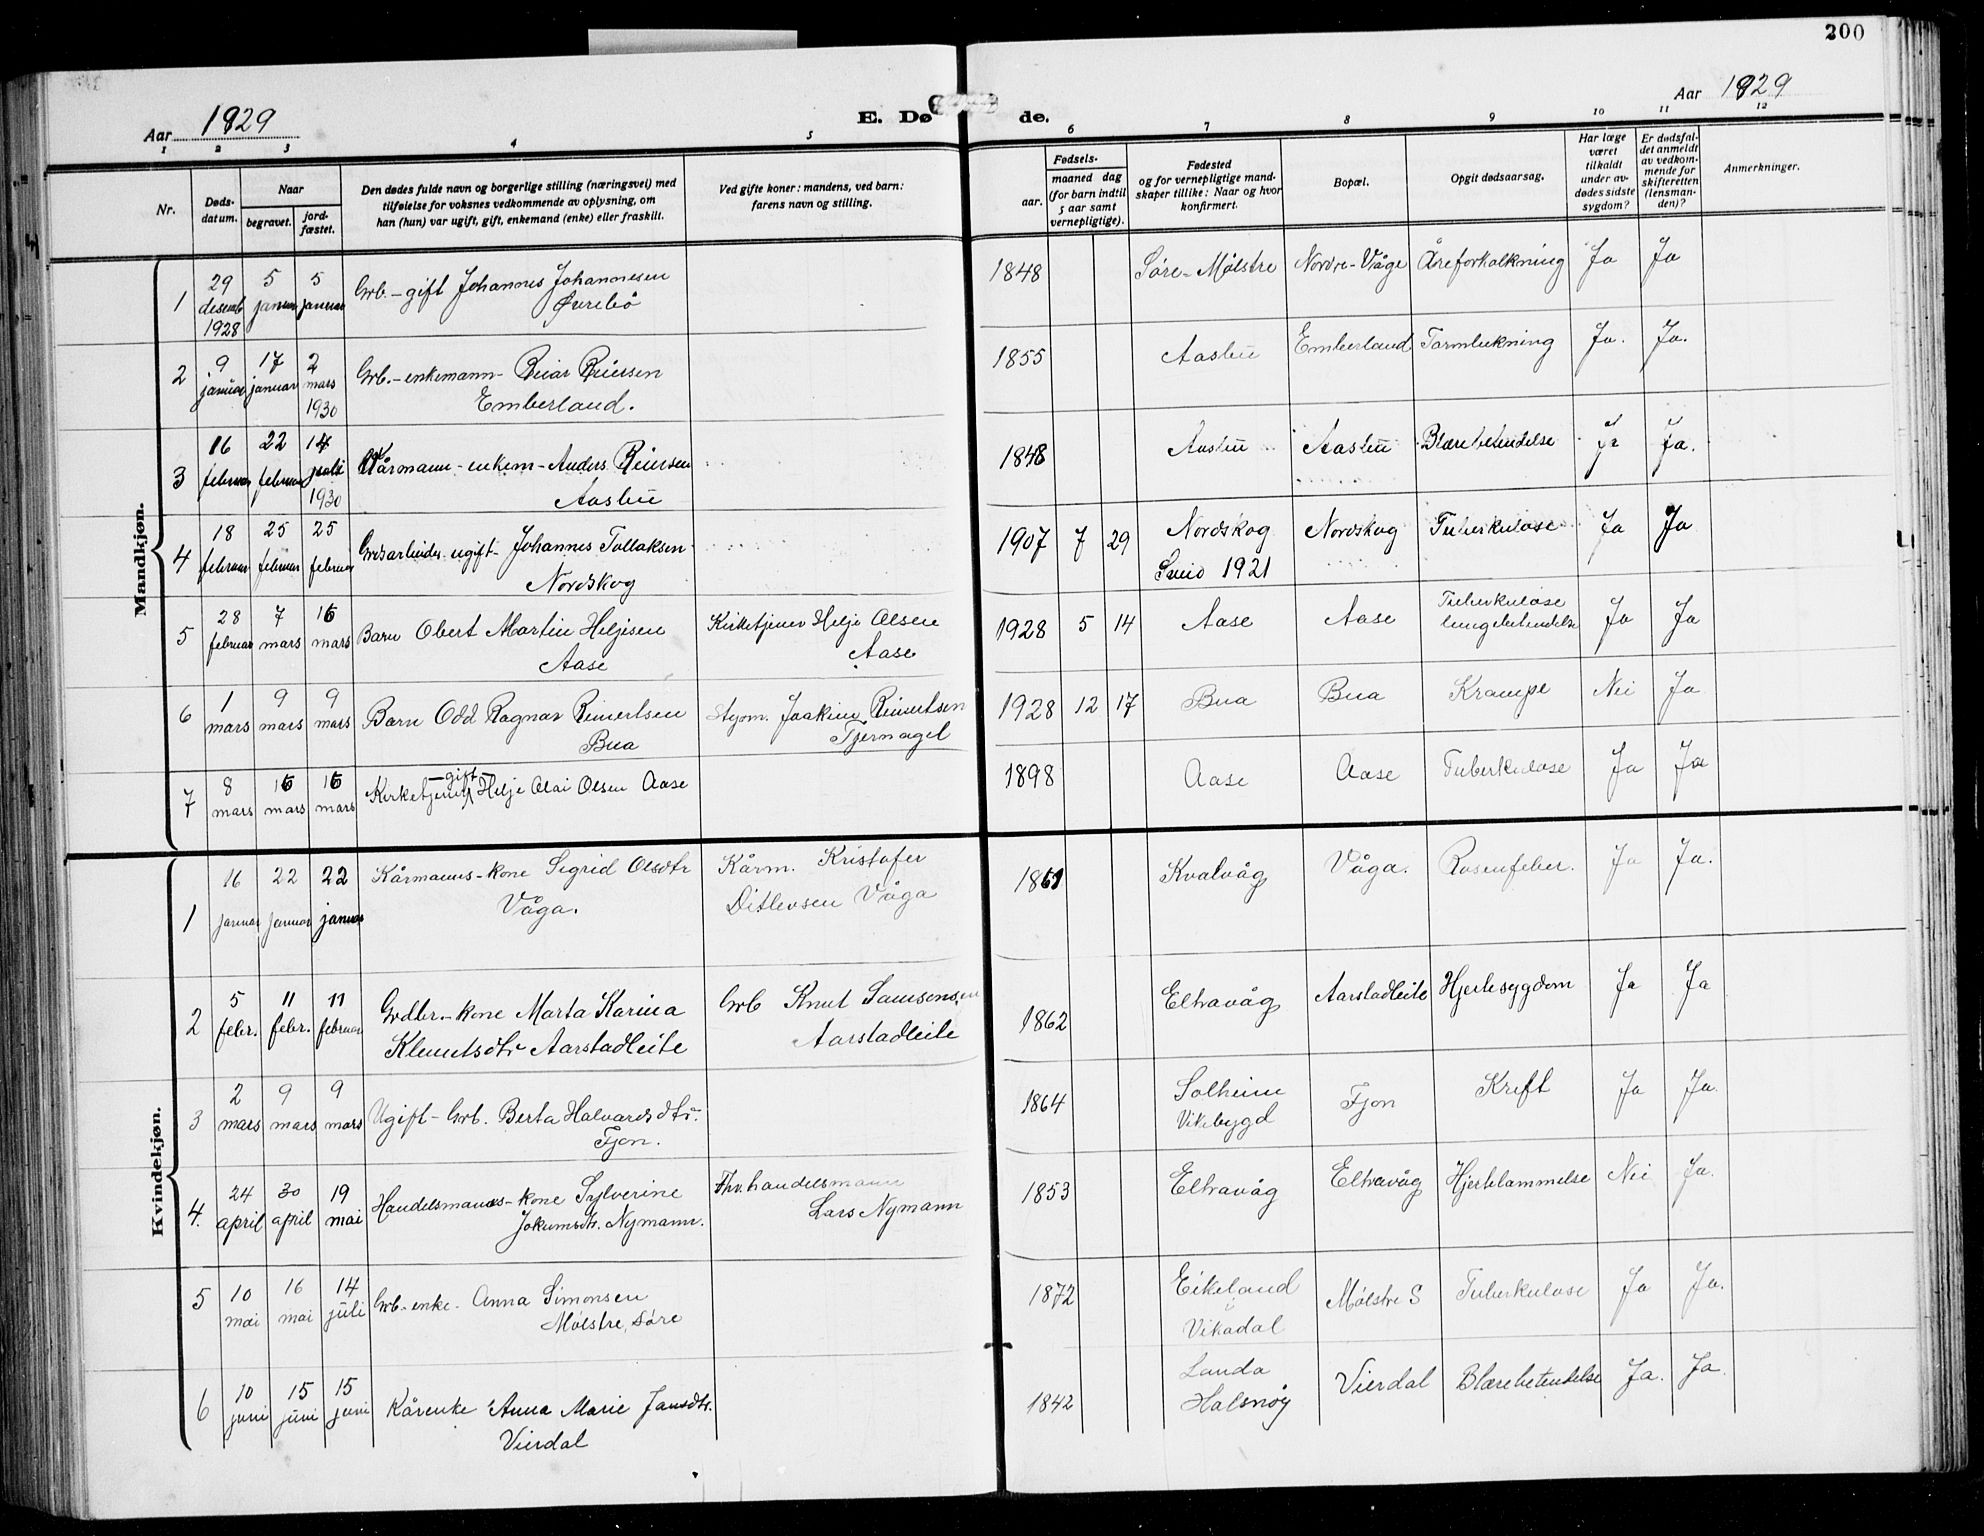 200
Aar 1929
E. Dø
de.
Aar 1929
1 2 3 4 5 6 7 8 9 10 11 12
Nr.
Døds-
datum.
Naar
begravet.
jord-
fæstet.
Den dødes fulde navn og borgerlige stilling (næringsvei) med
tilføielse for voksnes vedkommende av oplysning, om
han (hun) var ugift, gift, enkemand (enke) eller fraskilt.
Ved gifte koner: mandens, ved barn:
farens navn og stilling.
Fødsels-
aar.
maaned dag
(for barn indtil
5 aar samt
vernepligtige).
Fødested
og for vernepligtige mand-
skaper tillike: Naar og hvor
konfirmert.
Bopæl.
Opgit dødsaarsag.
Har læge
været
tilkaldt
under av-
dødes sidste
sygdom?
Er dødsfal-
det anmeldt
av vedkom-
mende for
skifteretten
(lensman-
den)?
Anmerkninger.
Mandkjøn.
1 29 desemb 1928 5 januar 5 januar Grb.-gift Johannes Johannesen
Øvrebö
1848 Søre-Mølstre Nordre-Våge Åreforkalkning Ja Ja
2 9 januar 17 januar 2 mars 1930 Grb.-enkemann- Reiar Reiersen
Emberland.
1855 Aasbu Emberland Tarmlukning Ja. Ja.
3 16 februar 22 februar 14 juli 1930 Kårmann-enkem-Anders Reiersen
Aasbu
1848 Aasbu Aasbu Blærebetendelse ja Ja.
4 18 februar 25 februar 25 februar Grdsarbeider ugift- Johannes Tollaksen
Nordskog
1907 7 29 Nordskog Nordskog Tuberkulose Ja Ja
Sveio 1921
5 28 februar 7 mars 16 mars Barn Obert Martin Heljesen
Aase
Kirketjener Helje Olsen
Aase
1928 5 14 Aase Aase Tuberkuløse
lungebetendelse Ja Ja
6 1 mars 9 mars 9 mars Barn Odd Ragnar Reinertsen
Bua
Styrm. Joakim Reinertsen
Tjernagel
1928 12 17 Bua Bua Krampe Nei Ja
7 8 mars 16 mars 16 mars Kirketjener -gift- Helje Olai Olsen Aase
1898 Aase Aase Tuberkulose Ja Ja
Kvindekjøn.
1 16 januar 22 januar 22 januar Kårmanns-kone Sigrid Olsdtr
Våga.
Kårm. Kristofer
Ditlevsen Våga
1861 Kvalvåg Våga. Rosenfeber. Ja Ja.
2 5 febr. 11 febr. 11 februar Grdbr.-kone Marta Karina
Klemetsdtr Aarstadleite
Grb Knut Samsonsen
Aarstadleite
1862 Eltravåg Aarstadleite Hjertesygdom Ja Ja
3 2 mars 9 mars 9 mars Ugift-Grb. Berta Halvardsdtr.
Fjon.
1864 Solheim
Vikebygd Fjon Kreft Ja Ja.
4. 24 april 30 april 19 mai Handelsmanns-kone Sylverine
Jokumsdtr. Nymann.
Fhv. handelsmann
Lars Nymann
1853 Eltravåg Eltravåg Hjertelammelse Nei Ja.
5 10 mai 16 mai 14 juli Grb-enke- Anna Simonsen
Mølstre, søre
1872 Eikeland
i
Vikadal Mølstre S Tuberkulose Ja Ja.
6 10 juni 15 juni 15 juni Kårenke Anna Marie Jansdtr.
Vierdal
1842 Landa
Halsnøy Vierdal Blærebetendelse Ja. Ja.